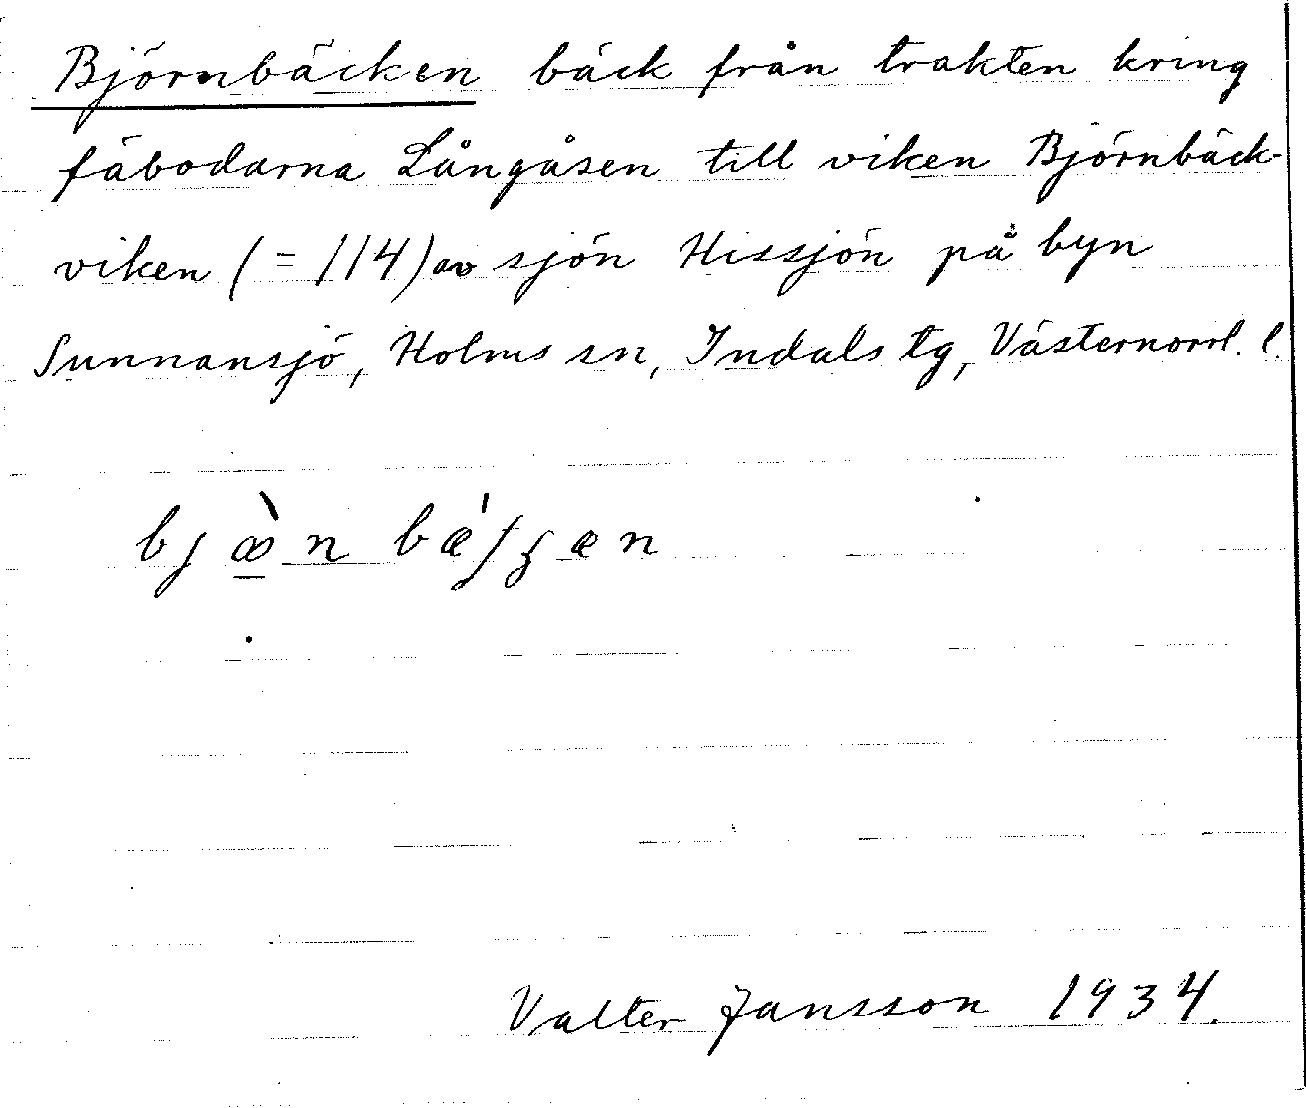 Björnbäcken bäck från trakten kring
fäbodarna Långåsen till viken Björnbäck-
viken (= 114) av sjön Hissjön på byn
Sunnansjö, Holms sn, Indals tg, Västernorrl. l.
Valter Jansson 1934.